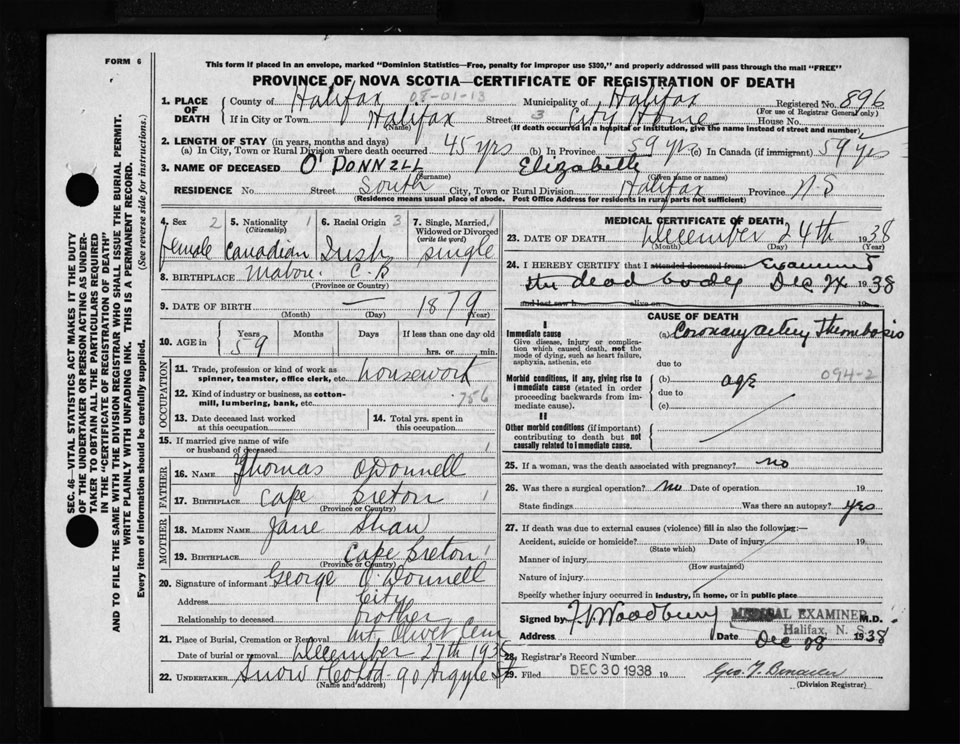 FORM 6
This form if placed in an envelope, marked "Dominion Statistics—Free, penalty for improper use $300," and properly addressed will pass through the mail "FREE"
PROVINCE OF NOVA SCOTIA—CERTIFICATE OF REGISTRATION OF DEATH
SEC. 46—VITAL STATISTICS ACT MAKES IT THE DUTY
OF THE UNDERTAKER OR PERSON ACTING AS UNDER-
TAKER TO OBTAIN ALL THE PARTICULARS REQUIRED
IN THE "CERTIFICATE OF REGISTRATION OF DEATH"
AND TO FILE THE SAME WITH THE DIVISION REGISTRAR WHO SHALL ISSUE THE BURIAL PERMIT.
WRITE PLAINLY WITH UNFADING INK. THIS IS A PERMANENT RECORD.
Every item of information should be carefully supplied. (See reverse side for instructions.)
1. PLACE OF DEATH
County of Halifax 08-01-13 Municipality of Halifax Registered No. 896
(For use of Registrar General only)
If in City or Town Halifax Street 3 City Home House No.
(Name) (If death occurred in a hospital or institution, give the name instead of street and number)
2. LENGTH OF STAY (in years, months and days)
(a) In City, Town or Rural Division where death occurred 45 yrs (b) In Province 59 yrs (c) In Canada (if immigrant) 59 yrs
3. NAME OF DECEASED O'DONNELL Elizabeth
(Surname) (Given name or names)
RESIDENCE No. Street South City, Town or Rural Division Halifax Province N-S
(Residence means usual place of abode. Post Office Address for residents in rural parts not sufficient)
4. Sex 2 5. Nationality 1 6. Racial Origin 3 7. Single, Married, 1
(Citizenship) Widowed or Divorced
(write the word)
female Canadian Irish single
8. BIRTHPLACE Mabou. C. B
(Province or Country)
9. DATE OF BIRTH — 1879
(Month) (Day) (Year)
10. AGE in Years Months Days If less than one day old
59 hrs. or min.
OCCUPATION
11. Trade, profession or kind of work as
spinner, teamster, office clerk, etc. housework
12. Kind of industry or business, as cotton-
mill, lumbering, bank, etc. 756
13. Date deceased last worked
at this occupation
14. Total yrs. spent in
this occupation
15. If married give name of wife
or husband of deceased 1
FATHER
16. NAME Thomas O'Donnell
17. BIRTHPLACE Cape Breton 1
(Province or Country)
MOTHER
18. MAIDEN NAME Jane Shaw
19. BIRTHPLACE Cape Breton 1
(Province or Country)
20. Signature of informant George O'Donnell
Address City
Relationship to deceased brother
21. Place of Burial, Cremation or Removal Mt. Olivet Cem
Date of burial or removal December 27th 1938
22. UNDERTAKER Snow & Co Ltd - 90 Argyle St
(Name and address)
MEDICAL CERTIFICATE OF DEATH
23. DATE OF DEATH December 24th 1938
(Month) (Day) (Year)
24. I HEREBY CERTIFY that I attended deceased from Examined
the dead body Dec 24 1938
and last saw h alive on 19
CAUSE OF DEATH
I
Immediate cause
Give disease, injury or complica-
tion which caused death, not the
mode of dying, such as heart failure,
asphyxia, asthenia, etc
(a) Coronary artery Thrombosis
due to
Morbid conditions, if any, giving rise to
immediate cause (stated in order
proceeding backwards from im-
mediate cause).
(b) age 094-2
due to
(c)
II
Other morbid conditions (if important)
contributing to death but not
causally related to immediate cause.
25. If a woman, was the death associated with pregnancy? no
26. Was there a surgical operation? no Date of operation 19
State findings Was there an autopsy? yes
27. If death was due to external causes (violence) fill in also the following:—
Accident, suicide or homicide? Date of injury 19
(State which)
Manner of injury
(How sustained)
Nature of injury
Specify whether injury occurred in industry, in home, or in public place
Signed by F. Woodbury MEDICAL EXAMINER M.D.
Halifax, N. S.
Address Date Dec 28 1938
28. Registrar's Record Number
29. Filed DEC 30 1938 19
(Division Registrar)